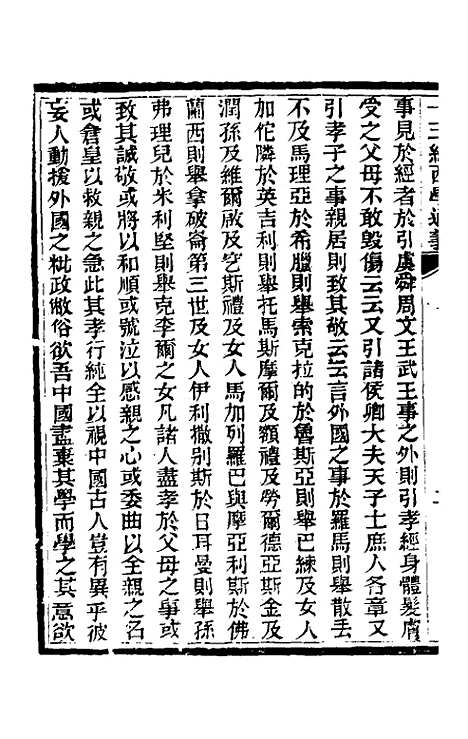 十三經西學通義
事見於經者於引虞舜周文王武王事之外則引孝經身體髮膚
受之父母不敢毀傷云云又引諸侯卿大夫天子士庶人各章又
引孝子之事親居則致其敬云云言外國之事於羅馬則舉散丟
不及馬理亞於希臘則舉索克拉的於魯斯亞則舉巴練及女人
加佗隣於英吉利則舉托馬斯摩爾及額禮及勞爾德亞斯金及
潤孫及維爾啟及穹斯禮及女人馬加列羅巴與摩亞利斯於佛
蘭西則舉拿破侖第三世及女人伊利撒別斯於日耳曼則舉孫
弗理兒於米利堅則舉克李爾之女凡諸人盡孝於父母之事或
致其誠敬或將以和順或號泣以感親之心或委曲以全親之名
或倉皇以救親之急此其孝行純全以視中國古人豈有異乎彼
妄人動援外國之粃政敝俗欲吾中國盡棄其學而學之其意欲